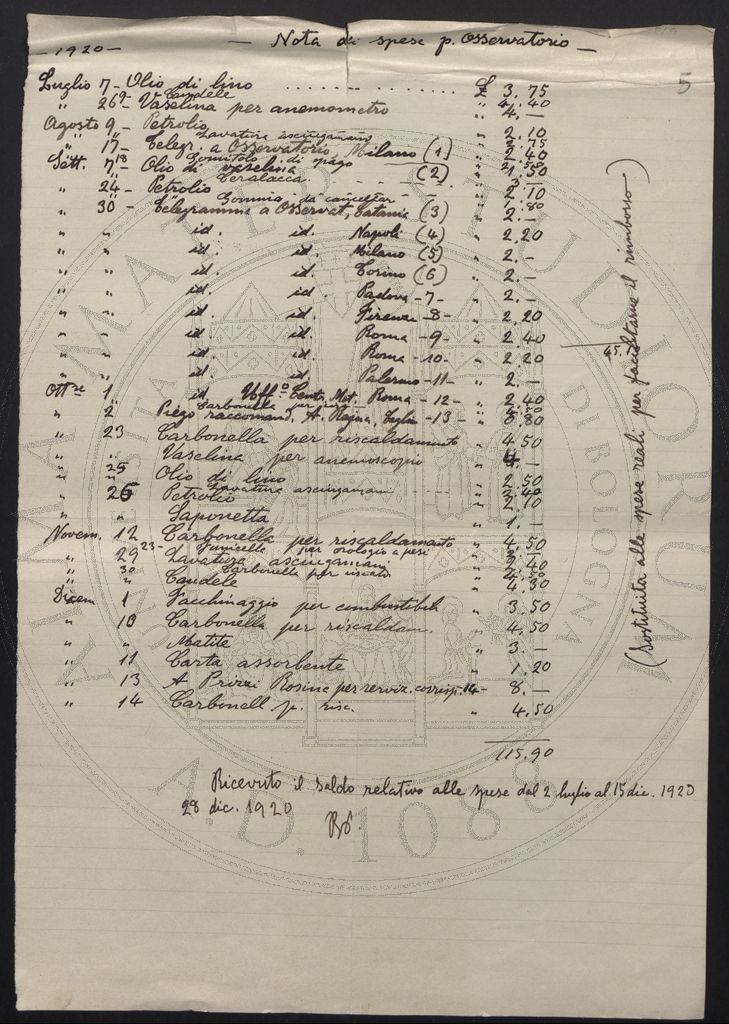 - 1920 - - Nota di spese p. Osservatorio -
5
Luglio 7 - Olio di lino . . . . . . . . . . £ 3.75
Candele " 4.40
" 26 - Vaselina per anemometro " 4. -
Agosto 9 - Petrolio " 2.10
Lavatura asciugamani
" 17 - Telegr. a Osservatorio, Milano (1) " 2.40
Gomitolo di spago
Sett. 7 - Olio di vaselina (2)
Ceralacca
" 24 - Petrolio " 2.10
Gomma da cancellar " 1.80
" 30 - Telegramma a Osservat, Catania (3) " 2. -
" " id. id. Napoli (4) " 2.20
" " id. id. Milano (5) " 2. -
" " id. id. Torino (6) " 2. -
" " id. id. Padova -7- " 2. -
" " id. id. Firenze -8- " 2.20
" " id. id. Roma -9- " 2.40
" " id. id. Roma -10- " 2.20
" " id. id. Palermo -11- " 2. -
Ottre 1 id. Uffo Cent. Met. Roma -12- " 2.40
Carbonella per
" 2 Piego raccomand. A. Rajna, -13-
" 23 Carbonella per riscaldamento " 4.50
" " Vaselina per anemoscopio " 4. -
" 25 Olio di lino " 2.50
Lavatura asciugamani " 2.40
" 26 Petrolio " 2.10
" " Saponetta " 1. -
Novem. 12 Carbonella per riscaldamento " 4.50
23 - Funicella per orologio a pesi
" 29 Lavatura asciugamani " 2.40
" 30 Carbonella per riscald.
" " Candele " 4.30
Dicem 1 Facchinaggio per combustibile " 3.50
" 10 Carbonella per riscaldam. " 4.50
" " Matite " 3. -
" 11 Carta assorbente " 1.20
" 13 A Prizzi Rosina per serviz. corrisp. 14 - " 8. -
" 14 Carbonell. p. risc. " 4.50
115.90
Ricevuto il saldo relativo alle spese dal 2 luglio al 15 dic. 1920
28 dic. 1920
(Sostituita alle spese reali per facilitarne il rimborso)
ALMA MATER STUDIORUM
UNIVERSITÀ DI BOLOGNA
A.D. 1088